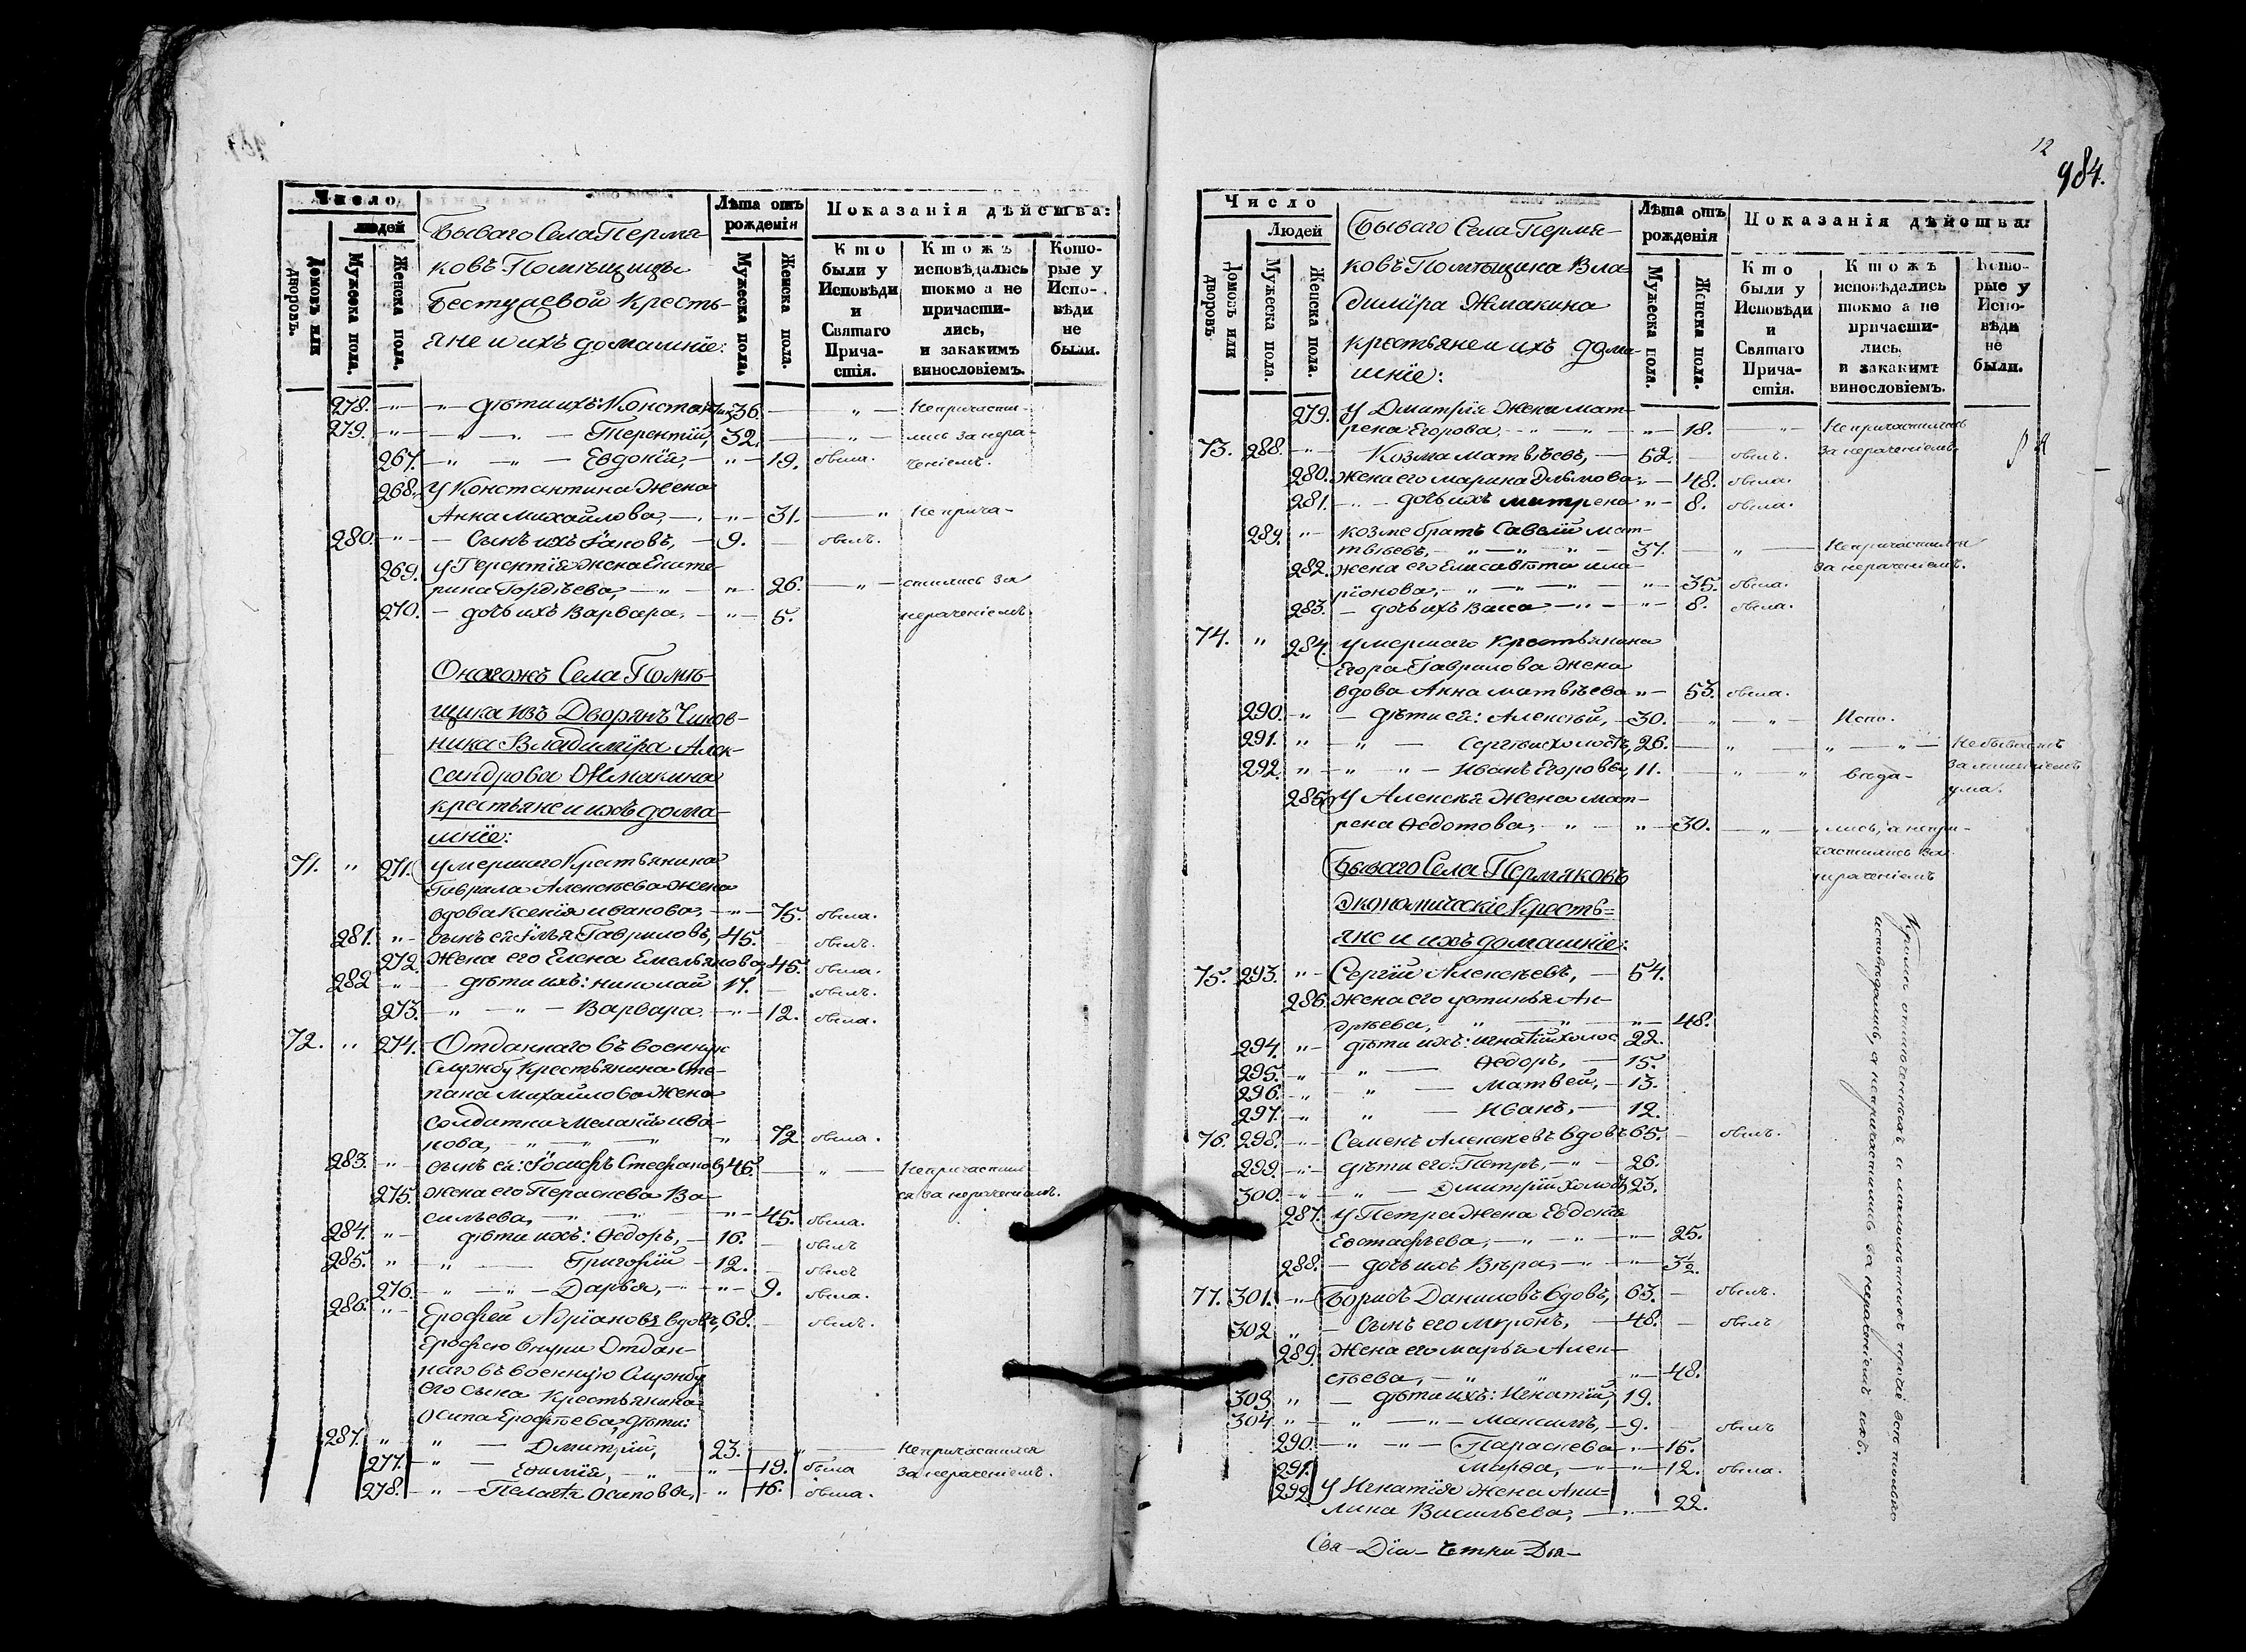 Число
людей
Домовъ или дворовъ.
Мужеска пола.
Женска пола.
Бываго Села Пермя-
ковъ Помѣщицы
Бестужевой Кресть-
яне и ихъ домашніе:
Лѣта отъ
рожденія
Мужеска пола.
Женска пола.
Показанія дѣйства:
Кто
были у
Исповѣди
и
Святаго
Прича-
стія.
Ктожъ
исповѣдались
токмо а не
причасти-
лись,
и закакимъ
винословіемъ.
Кото-
рые у
Испо-
вѣди
не
были.
278. дѣти ихъ: 36. Непричасти-
279. Терентій, 32. лись за нера-
267. Евдокія, 19. была. ченіемъ.
268. У Константина Жена
Анна Михайлова, 31. Неприча-
280. Сынъ ихъ 9. былъ.
269. У Терентія жена Екате-
рина Гордѣева, 26. стились за
270. дочь ихъ Варвара, 5. нераченіемъ
Онагожъ Села Помѣ-
щика изъ Дворянъ Чинов-
ника Владиміра Алек-
сандрова Жмакина
крестьяне и ихъ дома-
шніе:
71. 271. умершаго Крестьянина
Гаврила Алексѣева жена
вдова Ксенія Иванова, 75. была.
281. сынъ ея Илья Гавриловъ, 45. былъ.
272. Жена его Елена Емельянова, 45. была.
282 дѣти ихъ: Николай 17. былъ.
273. Варвара 12. была.
72. 274. Отданнаго въ военную
Службу Крестьянина Сте-
пана Михайлова Жена
солдатка Меланія Ива-
нова, 72 была.
283. сынъ ея: Іосифъ Стефановъ, 46. Непричастил
275. жена его Параскева Ва- ся за нераченіемъ.
сильева, 45. была.
284. дѣти ихъ: Ѳедоръ, 16. былъ
285. Григорій 12. былъ
276. Дарья, 9. была.
286. Ерофей Адріановъ вдовъ, 68. былъ.
Ерофею внуки Отдан-
наго въ военную Службу
его сына Крестьянина
Осипа Ерофѣева, дѣти:
287. Дмитрій, 23. Непричастился
277. Евимія, 19. была за нераченіемъ.
278. Пелагія Осиповы, 16. была.
12
984.
Число
Людей
Домовъ или дворовъ
Мужеска пола.
Женска пола.
Бываго Села Пермя-
ковъ Помѣщика Вла-
диміра Жмакина
крестьяне и ихъ дома-
шніе:
Лѣта отъ
рожденія
Мужеска пола.
Женска пола.
Показанія дѣйства:
Кто
были у
Исповѣди
и
Святаго
Прича-
стія.
Ктожъ
исповѣдались
токмо а не
причасти-
лись,
и закакимъ
винословіемъ.
Кото-
рые у
Испо-
вѣди
не
были.
279. У Дмитрія Жена Мат-
рена Егорова, 18. Непричастилась
73. 288. Козма Матвѣевъ, 52. былъ. за нераченіемъ
280. Жена его Марина 48. была.
281. дочь ихъ Матрена 8. была.
289. Козме братъ Савелій Мат-
твѣевъ, 37. Непричастился
282. жена его Елисавѣта Ила- за нераченіемъ.
ріонова, 35. была.
283. дочь ихъ Васса 8. была.
74. 284. умершаго Крестьянина
Егора Гаврилова жена
вдова Анна Матвѣева 53. была.
290. дѣти ея: Алексѣй, 30. Испо-
291. Сергѣй холостъ, 26. Небываетъ
292. Иванъ Егоровы, 11. вѣда- за лишеніемъ
285. У Алексѣя Жена Мат- ума.
рена Ѳедотова, 30. лись, а непри-
частились за
нераченіемъ
Бываго Села Пермяковъ
Экономическіе Кресть=
яне и ихъ домашніе:
75. 293. Сергій Алексѣевъ, 54.
286. Жена его Устинья Ан-
дрѣева, 48.
294. дѣти ихъ: Игнатій холос 22.
295. Ѳедоръ, 15.
296. Матвей, 13.
297. Иванъ, 12.
76. 298. Семенъ Алексѣевъ вдовъ 65. былъ.
299. дѣти его: Петръ, 26.
300. Дмитрій холостъ, 23.
287. У Петра Жена Евдокія
Евстафѣева, 25.
288. дочь ихъ Вѣра, 3½.
77. 301. Борисъ Даниловъ вдовъ, 63. былъ.
302 Сынъ его Миронъ, 48. былъ
289. Жена его Марья Алек-
сѣева, 48.
303 дѣти ихъ: Игнатій, 19.
304. Максимъ, 9. былъ
290. Параскева 15.
291. Марѳа, 12. была.
292. У Игнатія Жена Аки=
лина Васильева, 22.
Кромѣ отмѣченныхъ и малолѣтнихъ прочіе всѣ только
исповѣдались, а непричастились за нераченіемъ ихъ.
Свя- Діа-